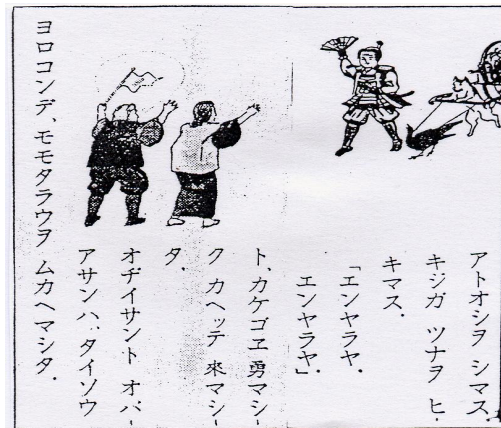 アトオシヲ シマス.
キジガ ツナヲ ヒ-
キマス.
「エンヤラヤ.
エンヤラヤ」
ト、カケゴヱ 勇マシ-
ク カヘッテ 來マシ-
タ.
オヂイサント オバ-
アサンハ、タイソウ
ヨロコンデ、モモタラウヲ ムカヘマシタ.